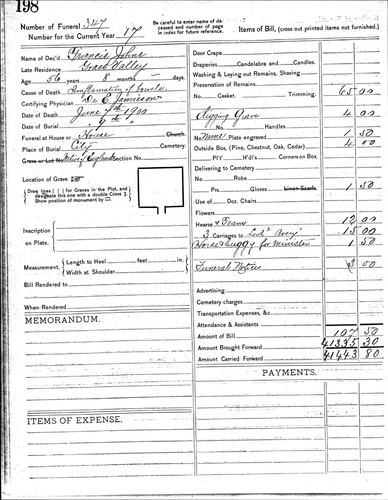 198
Number of Funeral 347
Number for the Current Year 17
Be careful to enter name of deceased and number of page in index for future reference.
Items of Bill, (cross out printed items not furnished.)
Name of Dec'd Francis Johns
Late Residence Grass Valley
Age 56 years 8 months – days.
Cause of Death Inflamation of bowels
Certifying Physician Dr. C. Jamieson
Date of Death June 7th 1900
Date of Burial " 8th "
Funeral at House or House Church.
Place of Burial City Cemetery.
Grave or Lot No. Section No.
Location of Grave
Draw lines for Graves in the Plot, and designate this one with a double Cross
Show position of monument by
Inscription on Plate.
Measurement. Length to Heel feet in.
Width at Shoulder
Bill Rendered to
When Rendered
MEMORANDUM.
ITEMS OF EXPENSE.
Door Crape
Draperies Candelabra and Candles.
Washing & Laying out Remains, Shaving
Preservation of Remains
No. Casket. Trimming. 65 00
Digging Grave 4 00
No. Handles
No. Name Plate engraved 1 50
Outside Box, (Pine, Chestnut, Oak, Cedar) 4 00
P'I'Y H'd'l's Corners on Box.
Delivering to Cemetery
No. Robe
Prs. Gloves Linen Scarfs 1 50
Use of Doz. Chairs
Flowers
Hearse & Team 12 00
3 Carriages to 15 00
Horse & buggy for Minister 1 50
Funeral Notices 3 00
Advertising
Cemetery charges
Transportation Expenses, &c.
Attendance & Assistants
Amount of Bill 107 50
Amount Brought Forward 41335 30
Amount Carried Forward 41443 80
PAYMENTS.